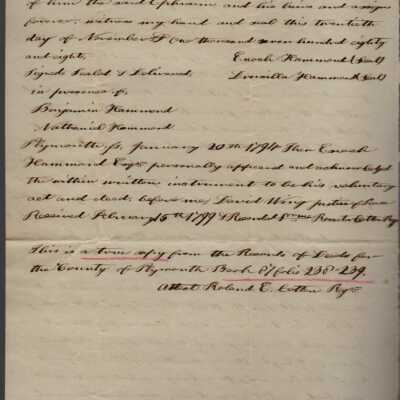 of him the said Ephraim and his heirs and assigns
forever, witness my hand and seal this twentieth
day of November One thousand seven hundred eighty
and eight, Enoch Hammond (seal)
Signed Sealed & Delivered, Drusilla Hammond (seal)
in presence of,
Benjamin Hammond
Nathaniel Hammond
Plymouth ss. January 20th 1794 Then Enoch
Hammond Esqr. personally appeared and acknowledged
the within written instrument to be his voluntary
act and deed, before me, David Wing Justice of Peace
Received February 15th 1799 & Recorded Rossiter Cotton
This is a true copy from the Records of Deeds for
the County of Plymouth Book 87 folio 238-239.
Attest Roland E. Cotton Regr.